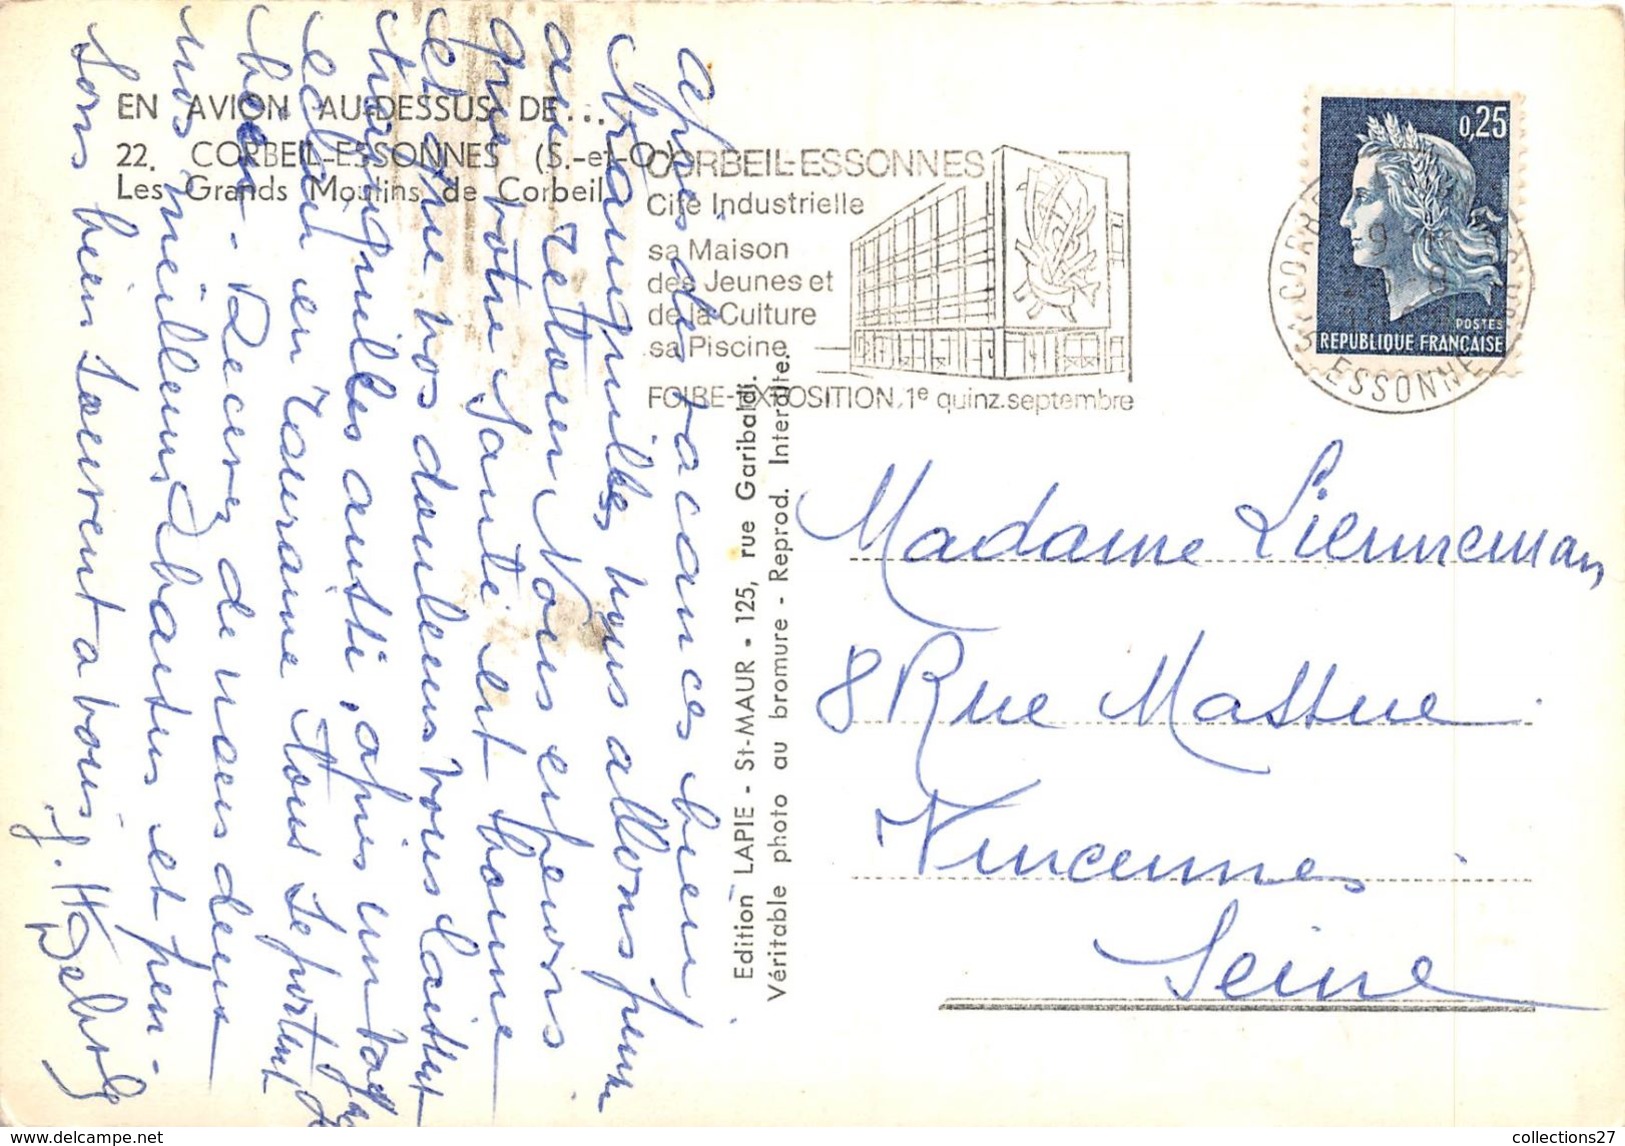 EN AVION AU-DESSUS DE...
22. CORBEIL-ESSONNES (S.-et-O.)
Les Grands Moulins de Corbeil
CORBEIL-ESSONNES
Cité Industrielle
sa Maison
des Jeunes et
de la Culture
sa Piscine
FOIRE-EXPOSITION. 1e quinz. septembre
0,25
POSTES
REPUBLIQUE FRANÇAISE
ESSONNE
Après des vacances bien
tranquilles nous allons
au retour Nous espérons
que votre santé est bonne
et que vos douleurs vous laissent
tranquilles aussi, après un
en Touraine Tous se portent
bien. Recevez de nous deux
nos meilleurs et pen-
sons bien souvent a vous
Edition LAPIE - St-MAUR - 125, rue Garibaldi.
Véritable photo au bromure - Reprod. Interdite.
Madame
8 Rue
Vincennes
Seine
https://www.delcampe.net/
collections27